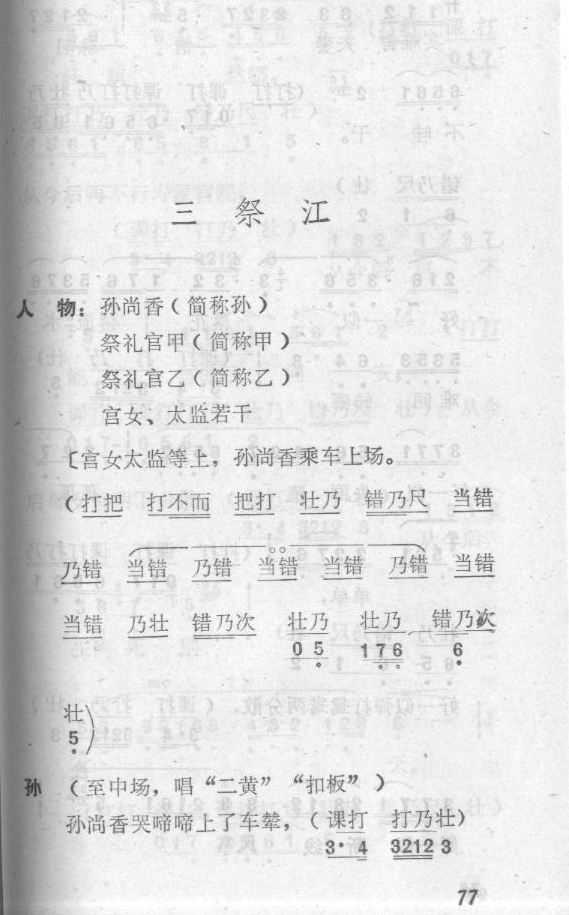 三 祭 江
人 物：孙尚香（简称孙）
祭礼官甲（简称甲）
祭礼官乙（简称乙）
宫女、太监若干
〔宫女太监等上，孙尚香乘车上场。
（打把 打不而 把打 壮乃 错乃尺 当错
乃错 当错 乃错 当错 当错 乃错 当错
当错 乃壮 错乃次 壮乃 壮乃 错乃次
0 5 1 7 6 6
壮）
5
孙 （至中场，唱“二黄”“扣板”）
孙尚香哭啼啼上了车辇，（课打 打乃壮）
3· 4 3212 3
77